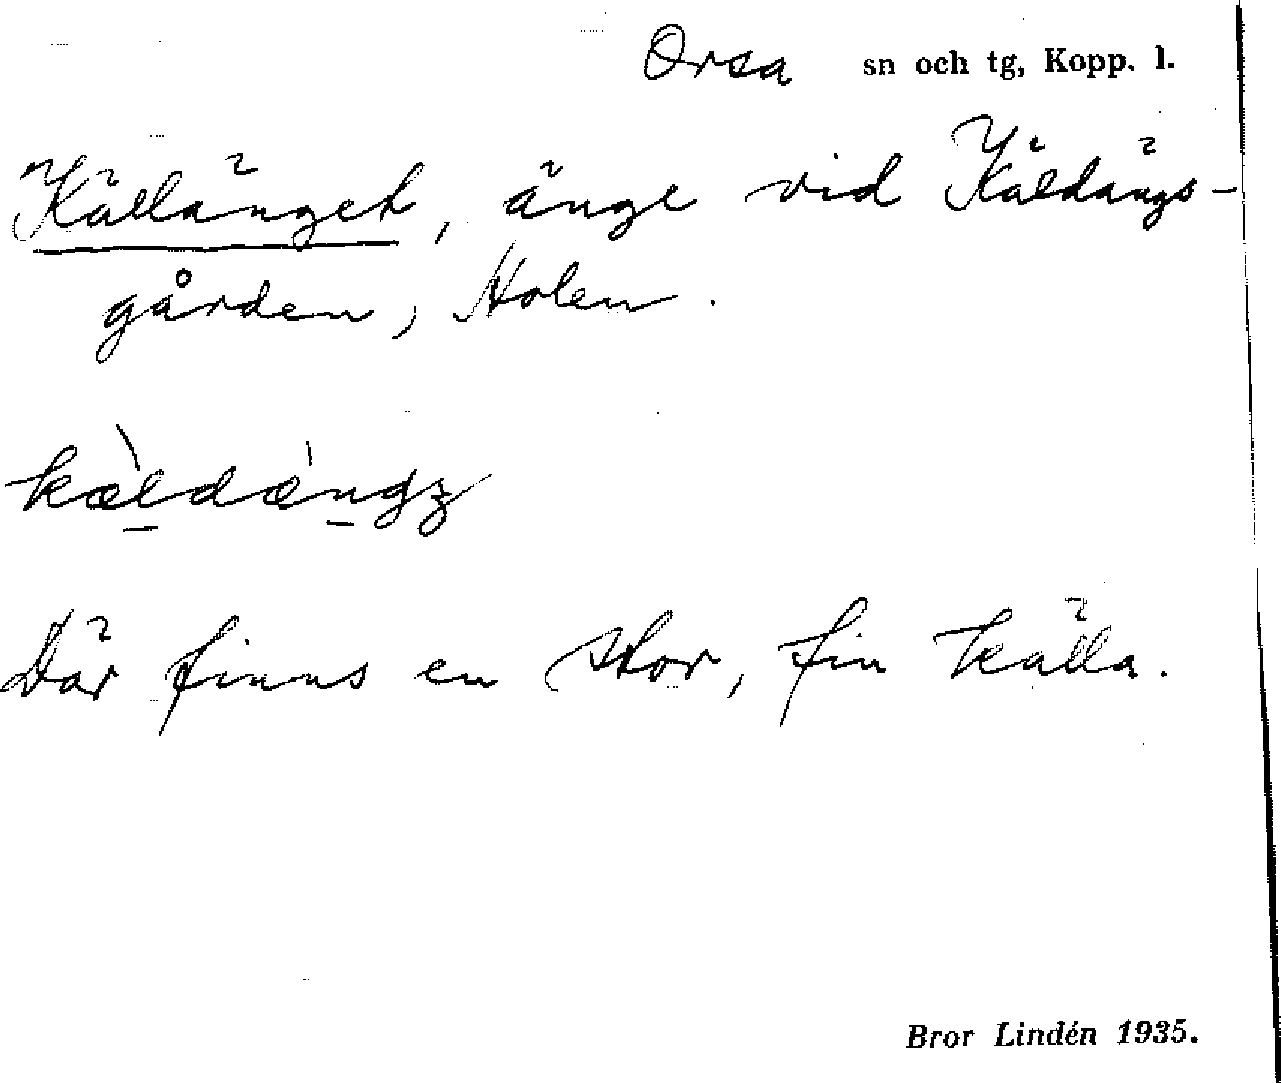 Orsa sn och tg, Kopp. l.
Källänget, änge vid Käldängs-
gården, Holen.
kæ̀ldæ̀ngz
Där finns en stor, fin källa.
Bror Lindén 1935.